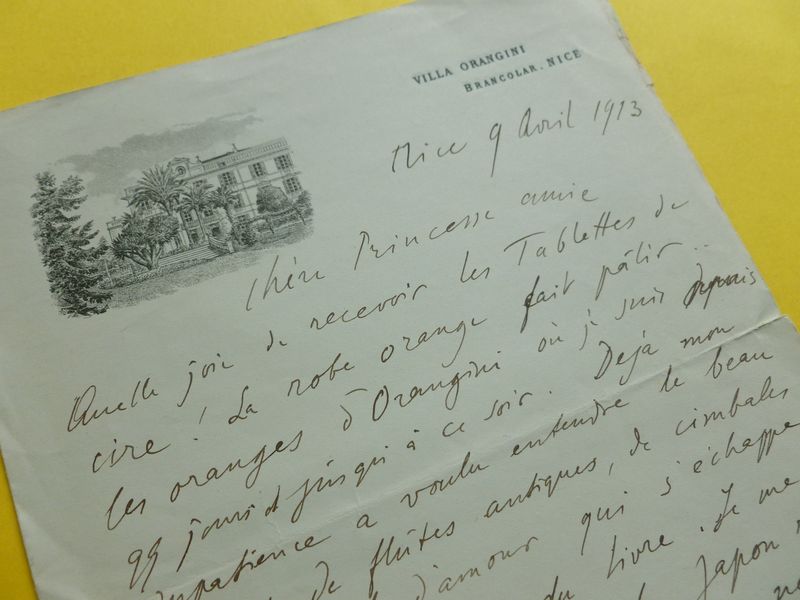 VILLA ORANGINI
BRANCOLAR. NICE
Nice 9 Avril 1913
Chère Princesse amie
Quelle joie de recevoir les Tablettes de
cire! La robe orange fait pâlir..
les oranges d'Orangini où je suis depuis
99 jours et jusqu'à ce soir. Déjà mon
impatience a voulu entendre le beau
de flûtes antiques, de cimbales
d'amour qui s'échappe
du livre. Je me
Japon